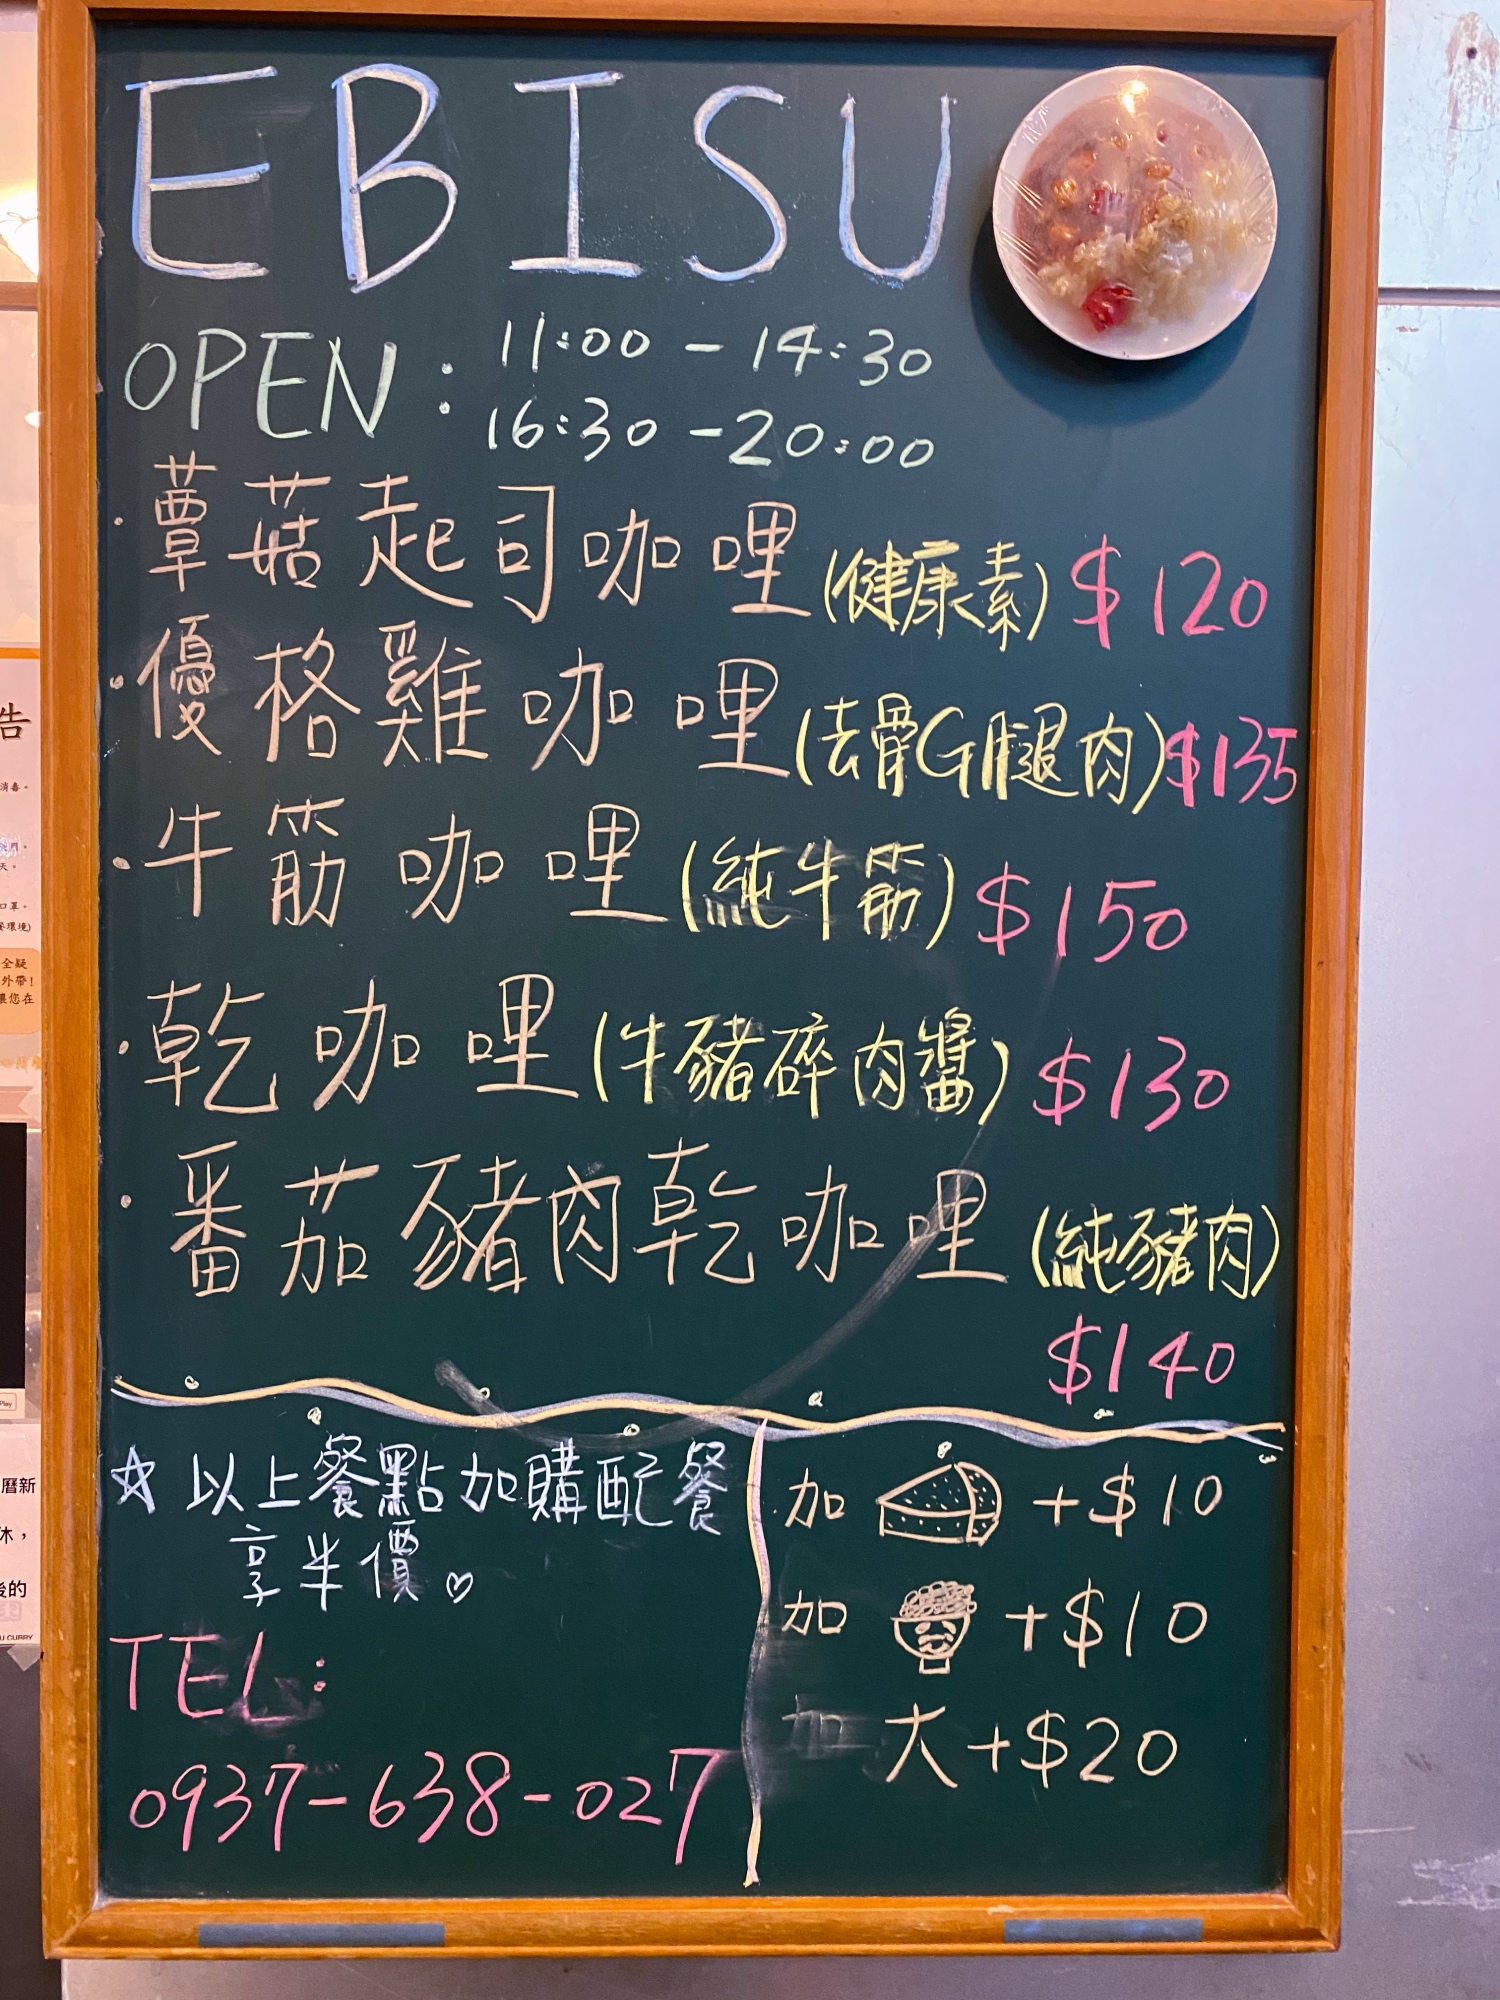 EBISU
OPEN: 11:00 - 14:30
16:30 - 20:00
·蕈菇起司咖哩(健康素) $120
·優格雞咖哩(去骨G腿肉)$135
·牛筋咖哩(純牛筋) $150
·乾咖哩(牛豬碎肉醬) $130
·番茄豬肉乾咖哩(純豬肉)
$140
☆以上餐點加購配餐
享半價♡
TEL:
0937-638-027
加 +$10
加 +$10
加大+$20
告
消毒。
天。
口罩。
全疑
外帶!
讓您在
Play
曆新
休，
後的
U CURRY